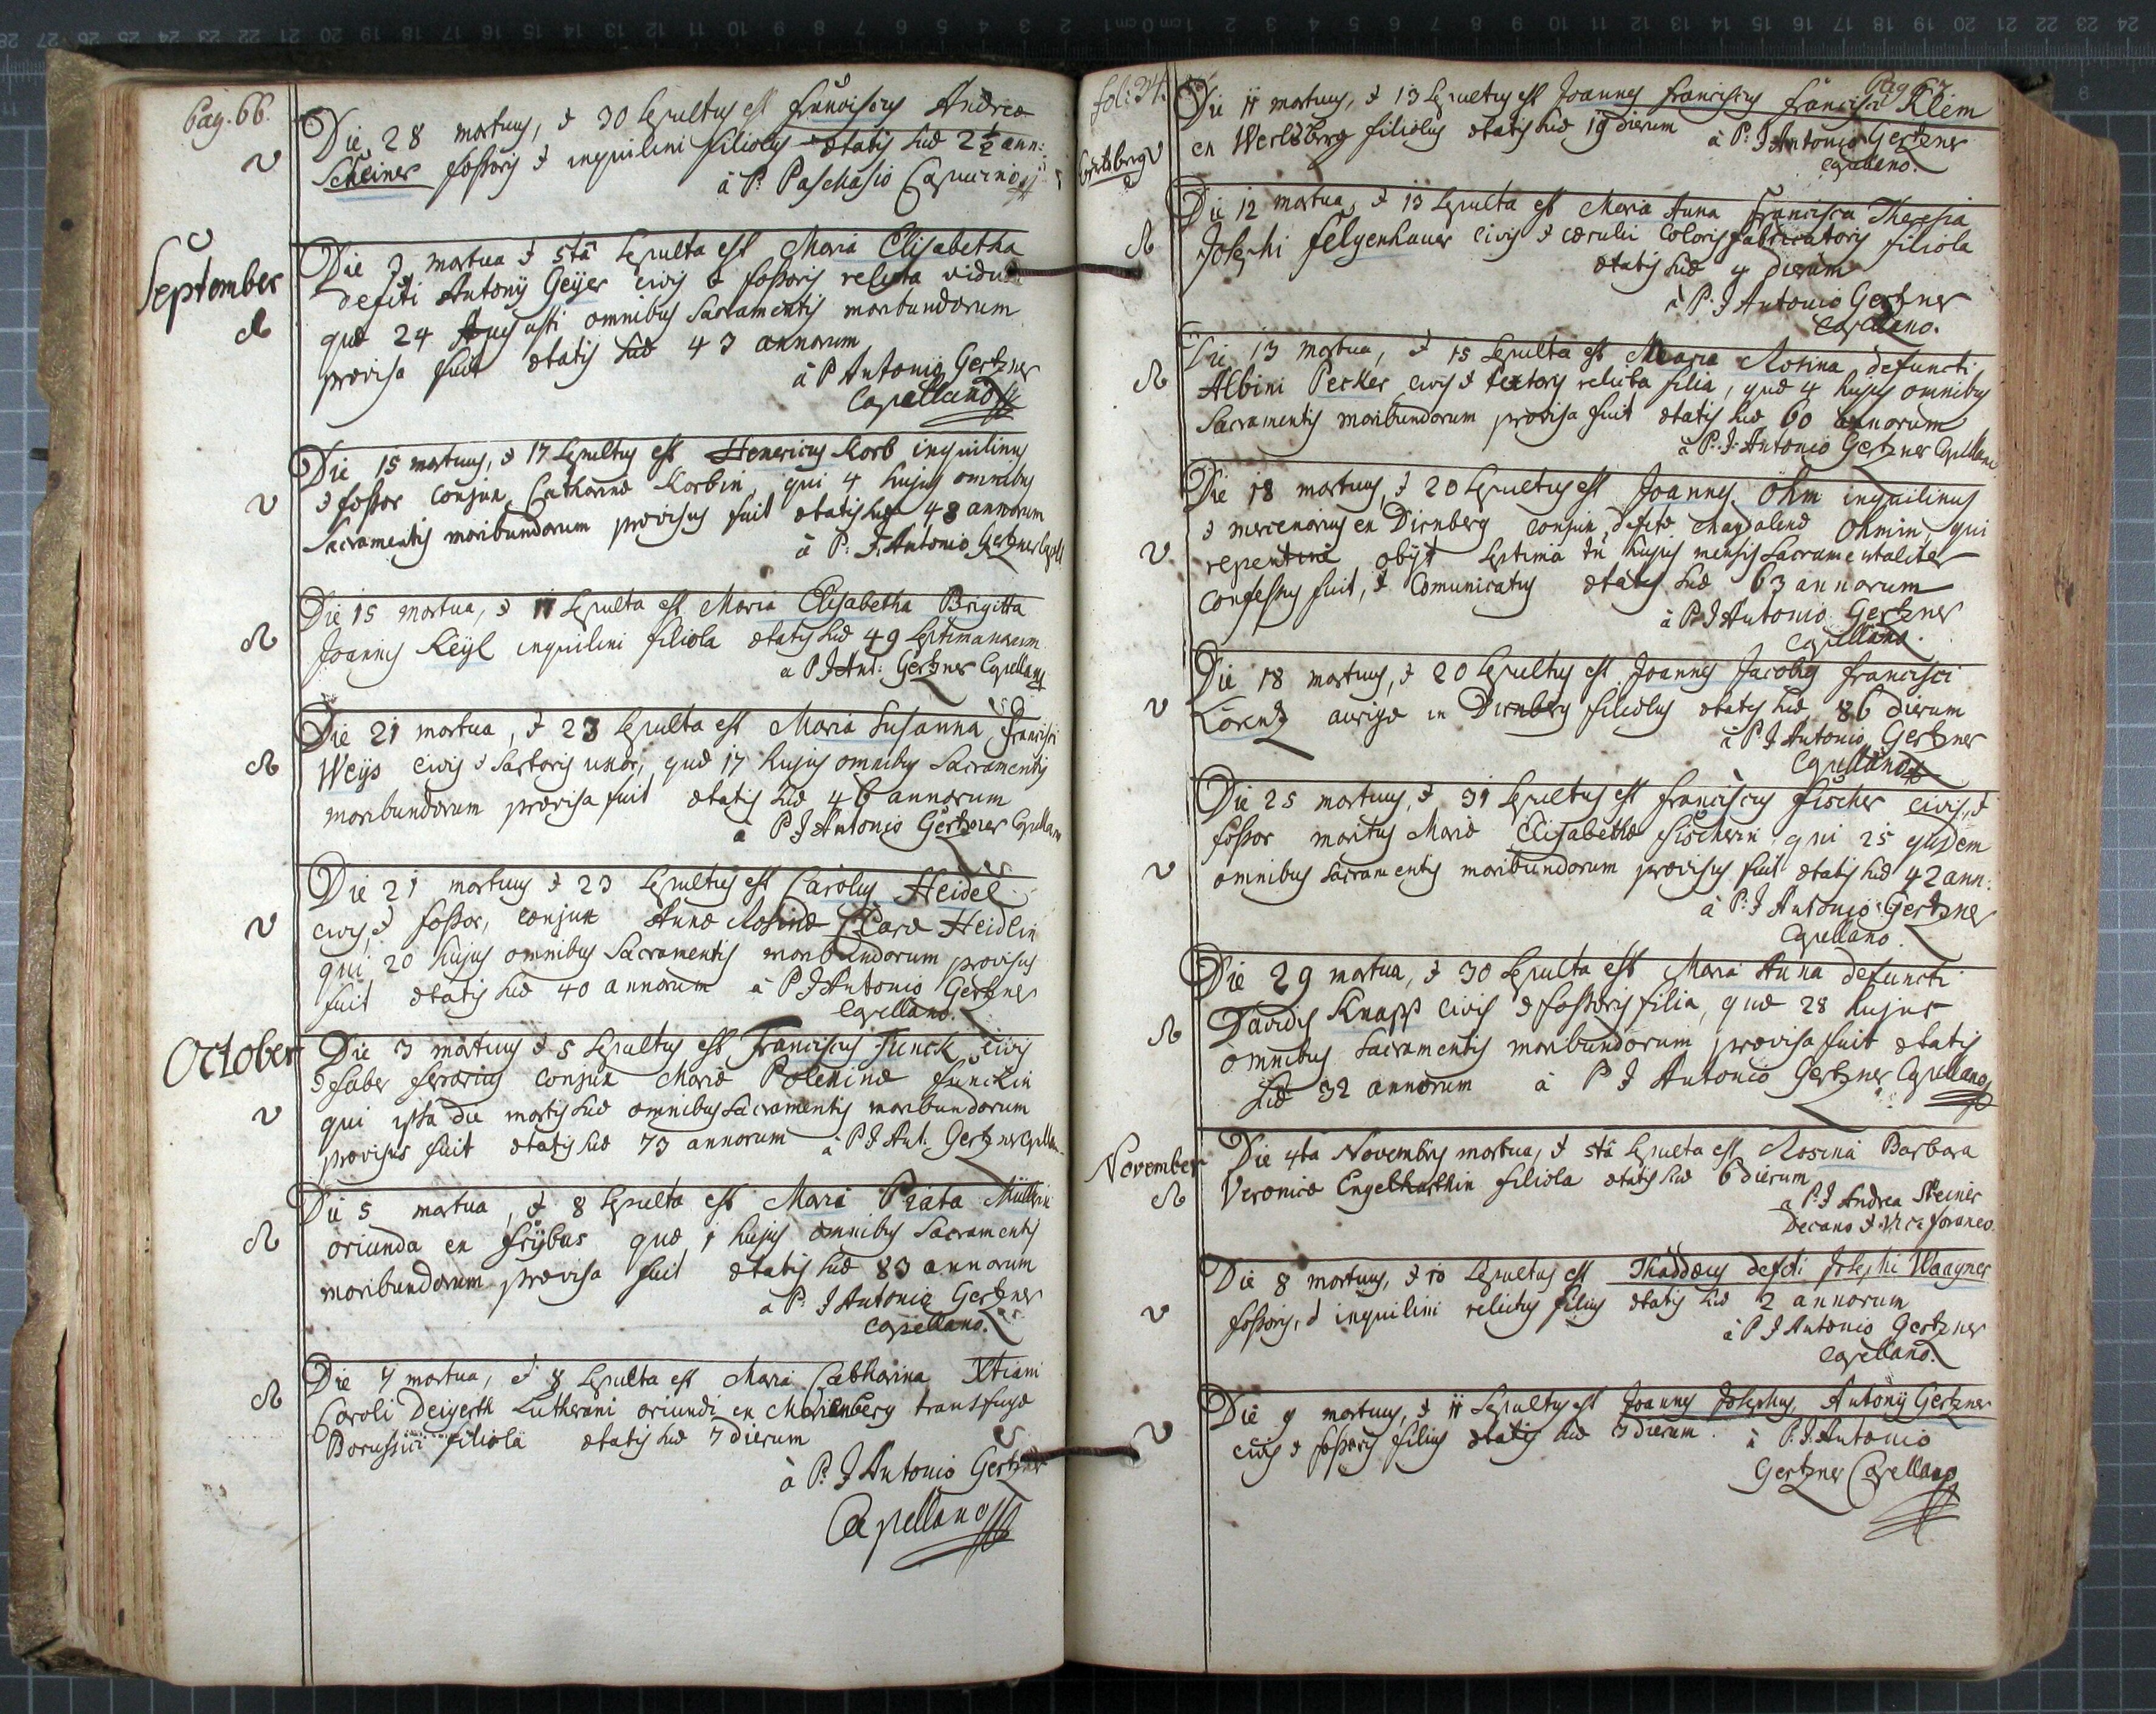 Pag. 66.
Die 28 mortuus, & 30 Sepultus est Franciscus Andreæ
Scheiner fossoris & inquilini filiolus ætatis suæ 2½ ann:
à P. Paschasio Capucino
September
Die 3 mortua & 5tâ Sepulta est Maria Elisabetha
defcti Antonij Geÿer civis & fossoris relicta vidua
quæ 24 Augusti omnibus Sacramentis moribundorum
provisa fuit ætatis suæ 43 annorum
à P Antonio Gertzner
Capellano
Die 15 mortuus, & 17 Sepultus est Henericus Korb inquilinus
& fossor conjux Catharinæ Korbin, qui 4 hujus omnibus
Sacramentis moribundorum provisus fuit ætatis suæ 48 annorum
à P: J: Antonio Gertzner Capell
Die 15 mortua, & 17 Sepulta est Maria Elisabetha Brigitta
Joannis Keÿl inquilini filiola ætatis suæ 49 Septimanarum
à P J Ant: Gertzner Capellano
Die 21 mortua, & 23 Sepulta est Maria Susanna Francisci
Weÿs civis & Sartoris uxor, quæ 17 hujus omnibus Sacramentis
moribundorum provisa fuit ætatis suæ 46 annorum
à P J Antonio Gertzner Capellano
Die 21 mortuus & 23 Sepultus est Carolus Heidel
civis, & fossor, conjux Annæ Rosinæ Claræ Heidlin
qui 20 hujus omnibus Sacramentis moribundorum provisus
fuit ætatis suæ 40 annorum à P J Antonio Gertzner
Capellano.
October
Die 3 mortuus & 5 Sepultus est Franciscus Funck civis
& faber ferrarius conjux Mariæ Poleninæ Funckin
qui ipsa die mortis suæ omnibus Sacramentis moribundorum
provisus fuit ætatis suæ 73 annorum à P J Ant: Gertzner Capellano
Die 5 mortua, & 8 Sepulta est Maria Beata Müllerin
oriunda ex Frÿbus quæ 1 hujus omnibus Sacramentis
moribundorum provisa fuit ætatis suæ 83 annorum
à P. J Antonio Gertzner
Capellano.
Die 7 mortua, & 8 Sepulta est Maria Catharina Xtiani
Caroli Deigerth Lutherani oriundi ex Marienberg transfugæ
Borussici filiola ætatis suæ 7 dierum
à P. J Antonio Gertzner
Capellano
fol: 34.
Pag 67
Die 11 mortuus, & 13 Sepultus est Joannes Franciscus Francisci Klem
ex Werlsberg filiolus ætatis suæ 19 dierum à P. J Antonio Gertzner
Capellano.
Die 12 mortua, & 13 Sepulta est Maria Anna Francisca Theresia
Josephi Felgenhauer civis & cærulei Coloris fabricatoris filiola
ætatis suæ 4 dierum
à P. J Antonio Gertzner
Capellano.
Die 13 mortua, & 15 Sepulta est Maria Rosina defuncti
Albini Pecker civis & textoris relicta filia, quæ 4 hujus omnibus
Sacramentis moribundorum provisa fuit ætatis suæ 60 annorum
à P: J: Antonio Gertzner Capellano
Die 18 mortuus, & 20 Sepultus est Joannes Ohm inquilinus
& mercenarius ex Dirnberg conjux defctæ Magdalenæ Ohmin, qui
repentinè obijt Septimâ hujus mensis Sacramentaliter
confessus fuit, & Comunicatus ætatis suæ 63 annorum
à P. J Antonio Gertzner
Capellano.
Die 18 mortuus, & 20 Sepultus est Joannes Jacobus Francisci
Lorentz aurigæ in Dirnberg filiolus ætatis suæ 86 dierum
à P J Antonio Gertzner
Capellano
Die 25 mortuus, & 31 Sepultus est Franciscus Fischer civis, &
fossor maritus Mariæ Elisabethæ Fischerin qui 25 ejusdem
omnibus Sacramentis moribundorum provisus fuit ætatis suæ 42 ann:
à P: J Antonio Gertzner
Capellano.
Die 29 mortua, & 30 Sepulta est Maria Anna defuncti
Davidis Knapp civis & fossoris filia, quæ 28 hujus
omnibus Sacramentis moribundorum provisa fuit ætatis
suæ 32 annorum à P J Antonio Gertzner Capellano
November
Die 4ta Novembris mortua, & 5tâ Sepulta est Rosina Barbara
Veronicæ Engelharthin filiola ætatis suæ 6 dierum
à P: J Andrea Steiner
Decano & Vic: foraneo.
Die 8 mortuus, & 10 Sepultus est Thaddæus defcti Josephi Waagner
fossoris, & inquilini relictus filius ætatis suæ 2 annorum
à P J Antonio Gertzner
Capellano.
Die 9 mortuus, & 11 Sepultus est Joannes Josephus Antonij Gertzner
civis & fossoris filius ætatis suæ 3 dierum. à P. J. Antonio
Gertzner Capellano